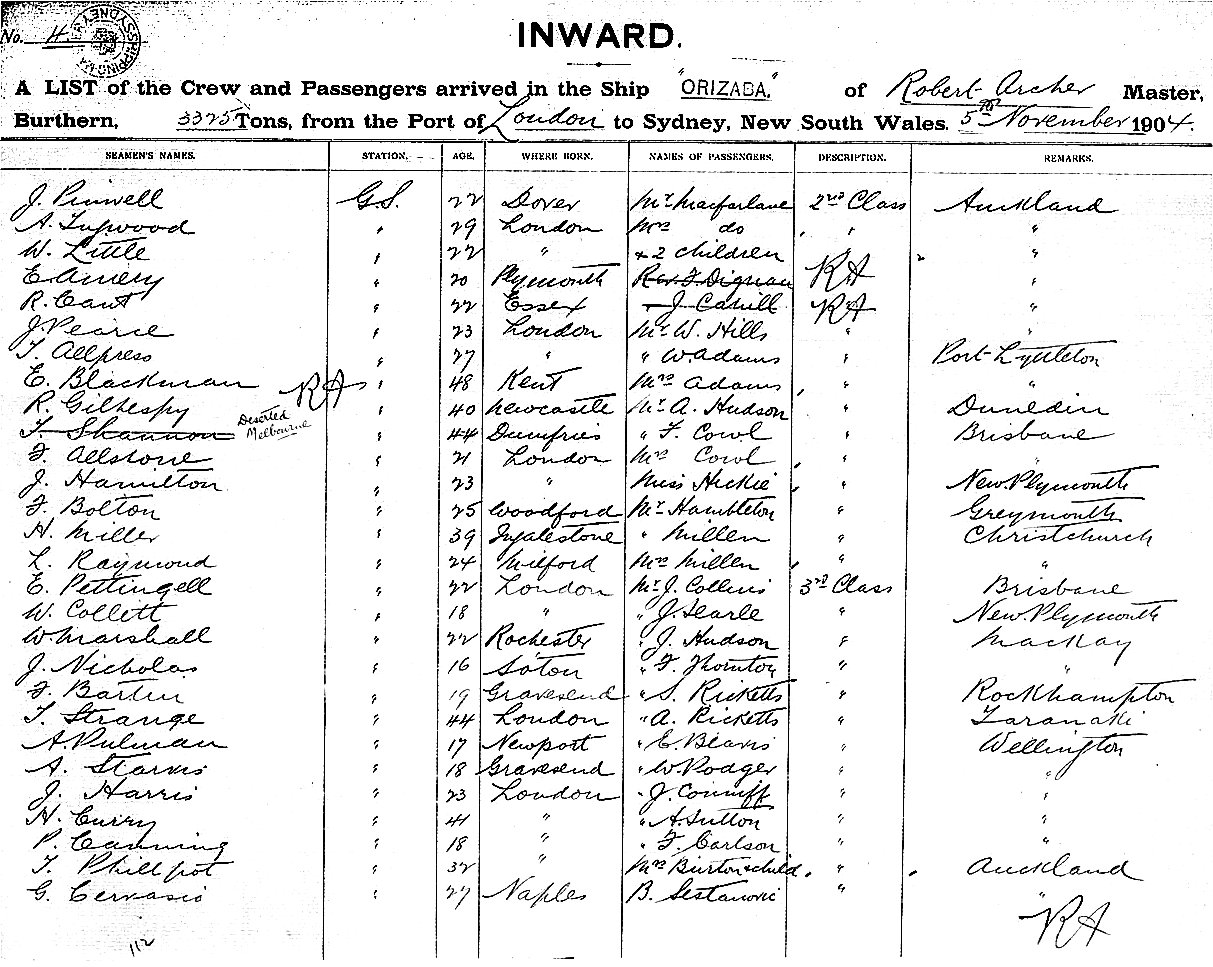 No. H.
SYDNEY SHIPPING MASTER
INWARD.
A LIST of the Crew and Passengers arrived in the Ship "ORIZABA." of Robert Archer Master,
Burthern, 3325 Tons, from the Port of London to Sydney, New South Wales. 5th November 1904.
SEAMEN'S NAMES. STATION. AGE. WHERE BORN. NAMES OF PASSENGERS. DESCRIPTION. REMARKS.
J. Pinwell G.S. 22 Dover Mr. Macfarlane 2nd Class Auckland
A. Tugwood " 29 London Mrs do " "
W. Little " 22 " & 2 children "
E Amery " 20 Plymouth Rev F Dignan RA "
R. Cant " 22 Essex - J. Cahill RA "
J Pearce " 23 London Mr. W. Hills " "
T. Allpress " 27 " " W. Adams " Port Lyttleton
E. Blackman RA " 48 Kent Mrs Adams " "
R. Gilhespy " 40 Newcastle Mr. A. Hudson " Dunedin
T. Shannon Deserted Melbourne " 44 Dumfries " F. Cowl " Brisbane
F. Allstone " 21 London Mrs Cowl " "
J. Hamilton " 23 " Miss Hickie " New Plymouth
F. Bolton " 25 Woodford Mr. Hambleton " Greymouth
H. Miller " 39 Ingatestone " Millen " Christchurch
L. Raymond " 24 Milford Mrs Millen " "
E. Pettingell " 22 London Mr. J. Collins 3rd Class Brisbane
W. Collett " 18 " " J. Searle " New Plymouth
W Marshall " 22 Rochester " J. Hudson " Mackay
J. Nicholas " 16 Soton " F. Thornton " "
F. Bartin " 19 Gravesend " S. Ricketts " Rockhampton
T. Strange " 44 London " A. Ricketts " Taranaki
A. Pulman " 17 Newport " E. Beavis " Wellington
A. Starkis " 18 Gravesend " W Rodger " "
J. Harris " 23 London " J. Conniff " "
H. Curry " 41 " " A. Sutton " "
P. Canning " 18 " " F. Carlson " "
T. Phillpot " 32 " Mrs Burton & child " Auckland
G. Gervasio " 27 Naples B. Sestanovic "
RA
112